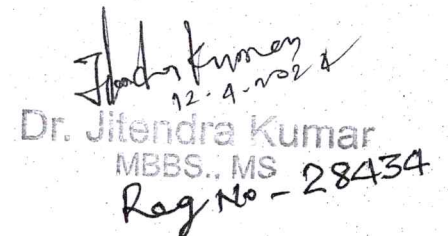 Jitendra Kumar
12-4-2024
Dr. Jitendra Kumar
MBBS., MS
Reg No - 28434